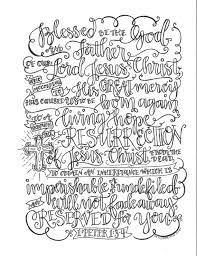 Blessed BE THE God
AND Father
OF OUR Lord Jesus Christ
WHO ACCORDING TO HIS GREAT mercy
HAS CAUSED US TO BE born again
TO A living hope
RESURRECTION
OF Jesus Christ FROM THE DEAD
TO OBTAIN AN INHERITANCE WHICH IS
imperishable & undefiled
& will not fade away
RESERVED for you
1 PETER 1:3-4